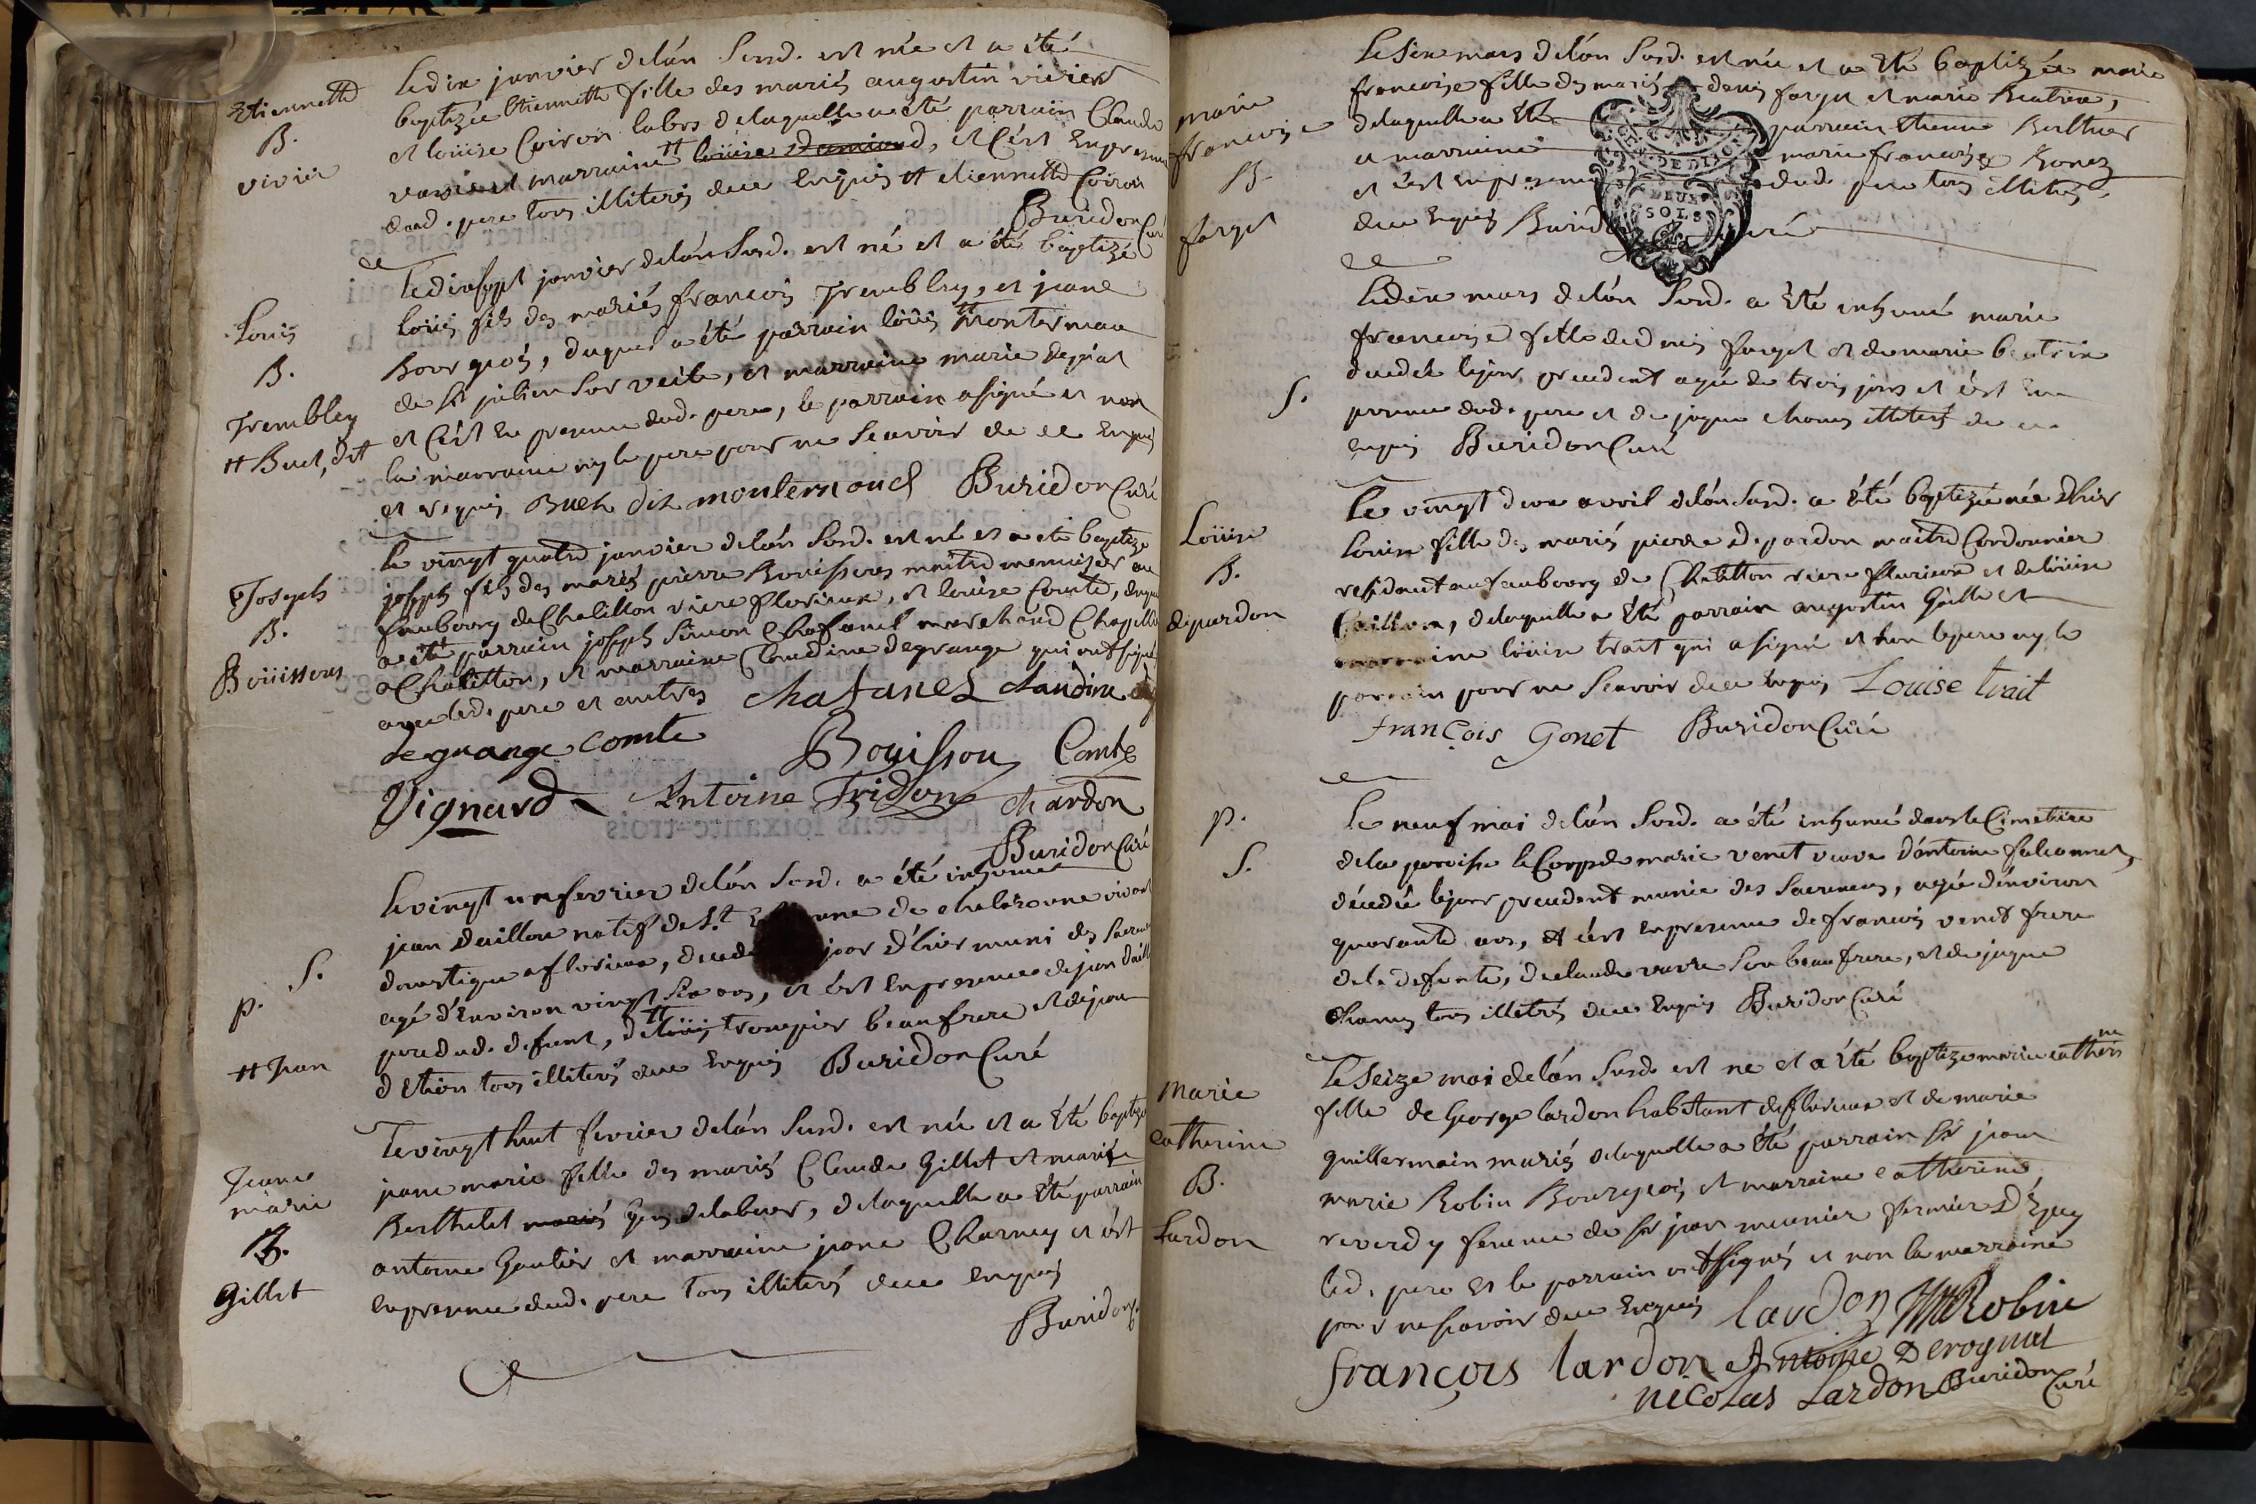 Etiennette
B.
vivier
Le dix janvier de l'án susd. est née et a été
baptizée etiennette fille des mariés augustin vivier
et loüise Coiron labrs de laquelle a été parrain Claude
et marraine # loüise, et c'ést En presence
dud. pere tous illiterés de ce Enquis # etiennette Coiron
Buridon Curé
Louis
B.
Trembley
# Buet, dit
Le dixsept janvier de l'án susd. est né et a été baptizé
loüis fils des mariés francois Trembley, et jeane
Bourgeois, duquel a été parrain loüis # Monternau
de st julien sur veile, et marraine marie
et c'ést En presence dud. pere, le parrain a signé et non
la marraine ny le pere pour ne scavoir de ce Enquis
et requis Buet dit monternoud Buridon Curé
Joseph
B.
Boüissous
Le vingt quatre janvier de l'án susd. est né et a eté baptizé
joseph fils des mariés pierre Boüissous maitre menuisier au
faubourg de Chatillon riere flurieux, et loüise Comte, duquel
a été parrain joseph Simeon Chafanel marchand Chapellier
a Chatillon, et marraine Claudine degrange qui ont signé
avec led. pere et autres chafanel claudine
degrange comte Bouissou Comte
Vignard Antoine Tridon chardon
Buridon Curé
S.
p.
# Jean
Le vingt un fevrier de l'án susd. a été inhumé
jean daillou natif de St de chalaronne vivant
domestique a flurieux, jour d'hier muni des Sacremens
agé d'Environ vingt six ans, et c'ést En presence de jean
pere dud. defunt, de # loüis trompier beaufrere et de jean
tous illiterés de ce Enquis Buridon Curé
Jeane
marie
B.
Gillet
Le vingt huit fevrier de l'án susd. est née et a été baptizé
jeane marie fille des mariés Claude Gillet et marie
Berthelet mariés Gens de labeur, de laquelle a été parrain
antoine Gautier et marraine jeane Charney et c'ést
En presence dud. pere tous illiterés de ce Enquis
Buridon
marie
francoise
B.
forget
Le Sixe mars de l'án susd. est née et a été baptizée marie
francoise fille des mariés denis forget et marie Beatrix,
de laquelle a été parrain etienne Berthier
et marraine marie francoise
et c'ést En presence dud. pere tous illiterés
de ce Enquis Buridon curé
GEN. DE DIJON
DEUX
SOLS
S.
Le dix mars de l'án susd. a été inhumé marie
francoise fille de denis forget et de marie beatrix
decedée le jour precedent agée de trois jours et c'ést En
presence dud. pere et de jaque chonus illiterés de ce
enquis Buridon Curé
Loüise
B.
depardon
Le vingt deux avril de l'án susd. a été baptizée née d'hier
loüise fille des mariés pierre depardon maitre Cordonnier
residant au faubourg de Chatillon riere flurieux et de loüise
Caillon, de laquelle a été parrain augustin Gaillet
marraine loüise trait qui a signé et non le pere ny le
parrain pour ne Scavoir de ce Enquis Louise trait
françois Gonet Buridon Curé
p.
S.
Le neuf mai de l'án susd. a été inhumé dans le Cimetiere
de la paroisse le Corps de marie venet veuve d'antoine falconnet,
décedée le jour precedent munie des Sacremens, agée d'environ
quarante ans, et c'ést En presence de francois venet frere
de la defunte, de claude varre Son beaufrere, et de jaque
chonus tous illiterés de ce Enquis Buridon Curé
Marie
catherine
B.
Lardon
Le Seize mai de l'án susd. est ne et a été baptizé marie catherine
fille de George lardon habitant de flurieux et de marie
guillermain mariés de laquelle a été parrain Sr jean
marie Robin Bourgeois et marraine catherine
reverdy femme de Sr jean meunier fermier d'Epey
led. pere et le parrain ont signés et non la marraine
pour ne scavoir de ce Enquis lardon JM Robin
françois lardon Antoine Derognat
nicolas Lardon Buridon
Curé